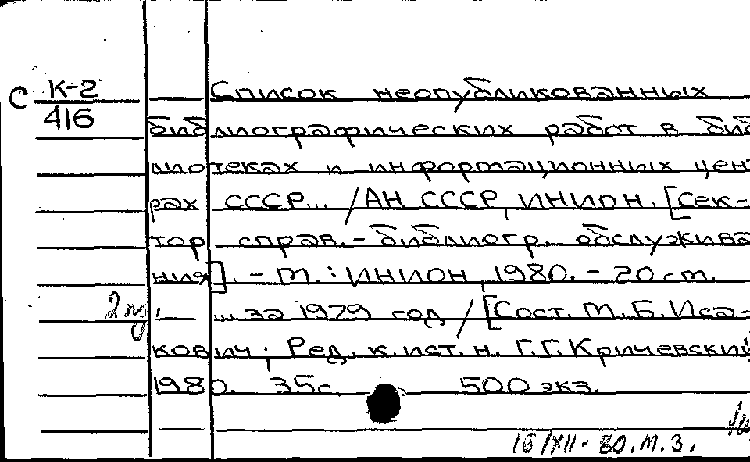 С К-2
416
Список неопубликованных
библиографических работ в биб
лиотеках и информационных цент
рах СССР... /АН СССР, ИНИОН. [Сек-
тор справ.-библиогр. обслужива
ния]. - М.: ИНИОН, 1980. - 20 см.
... за 1979 год / [Сост. М.Б. Иса-
кович; Ред. к. ист. н. Г.Г. Кричевский
1980. 35с. 500 экз.
16/XII-80. М.З.